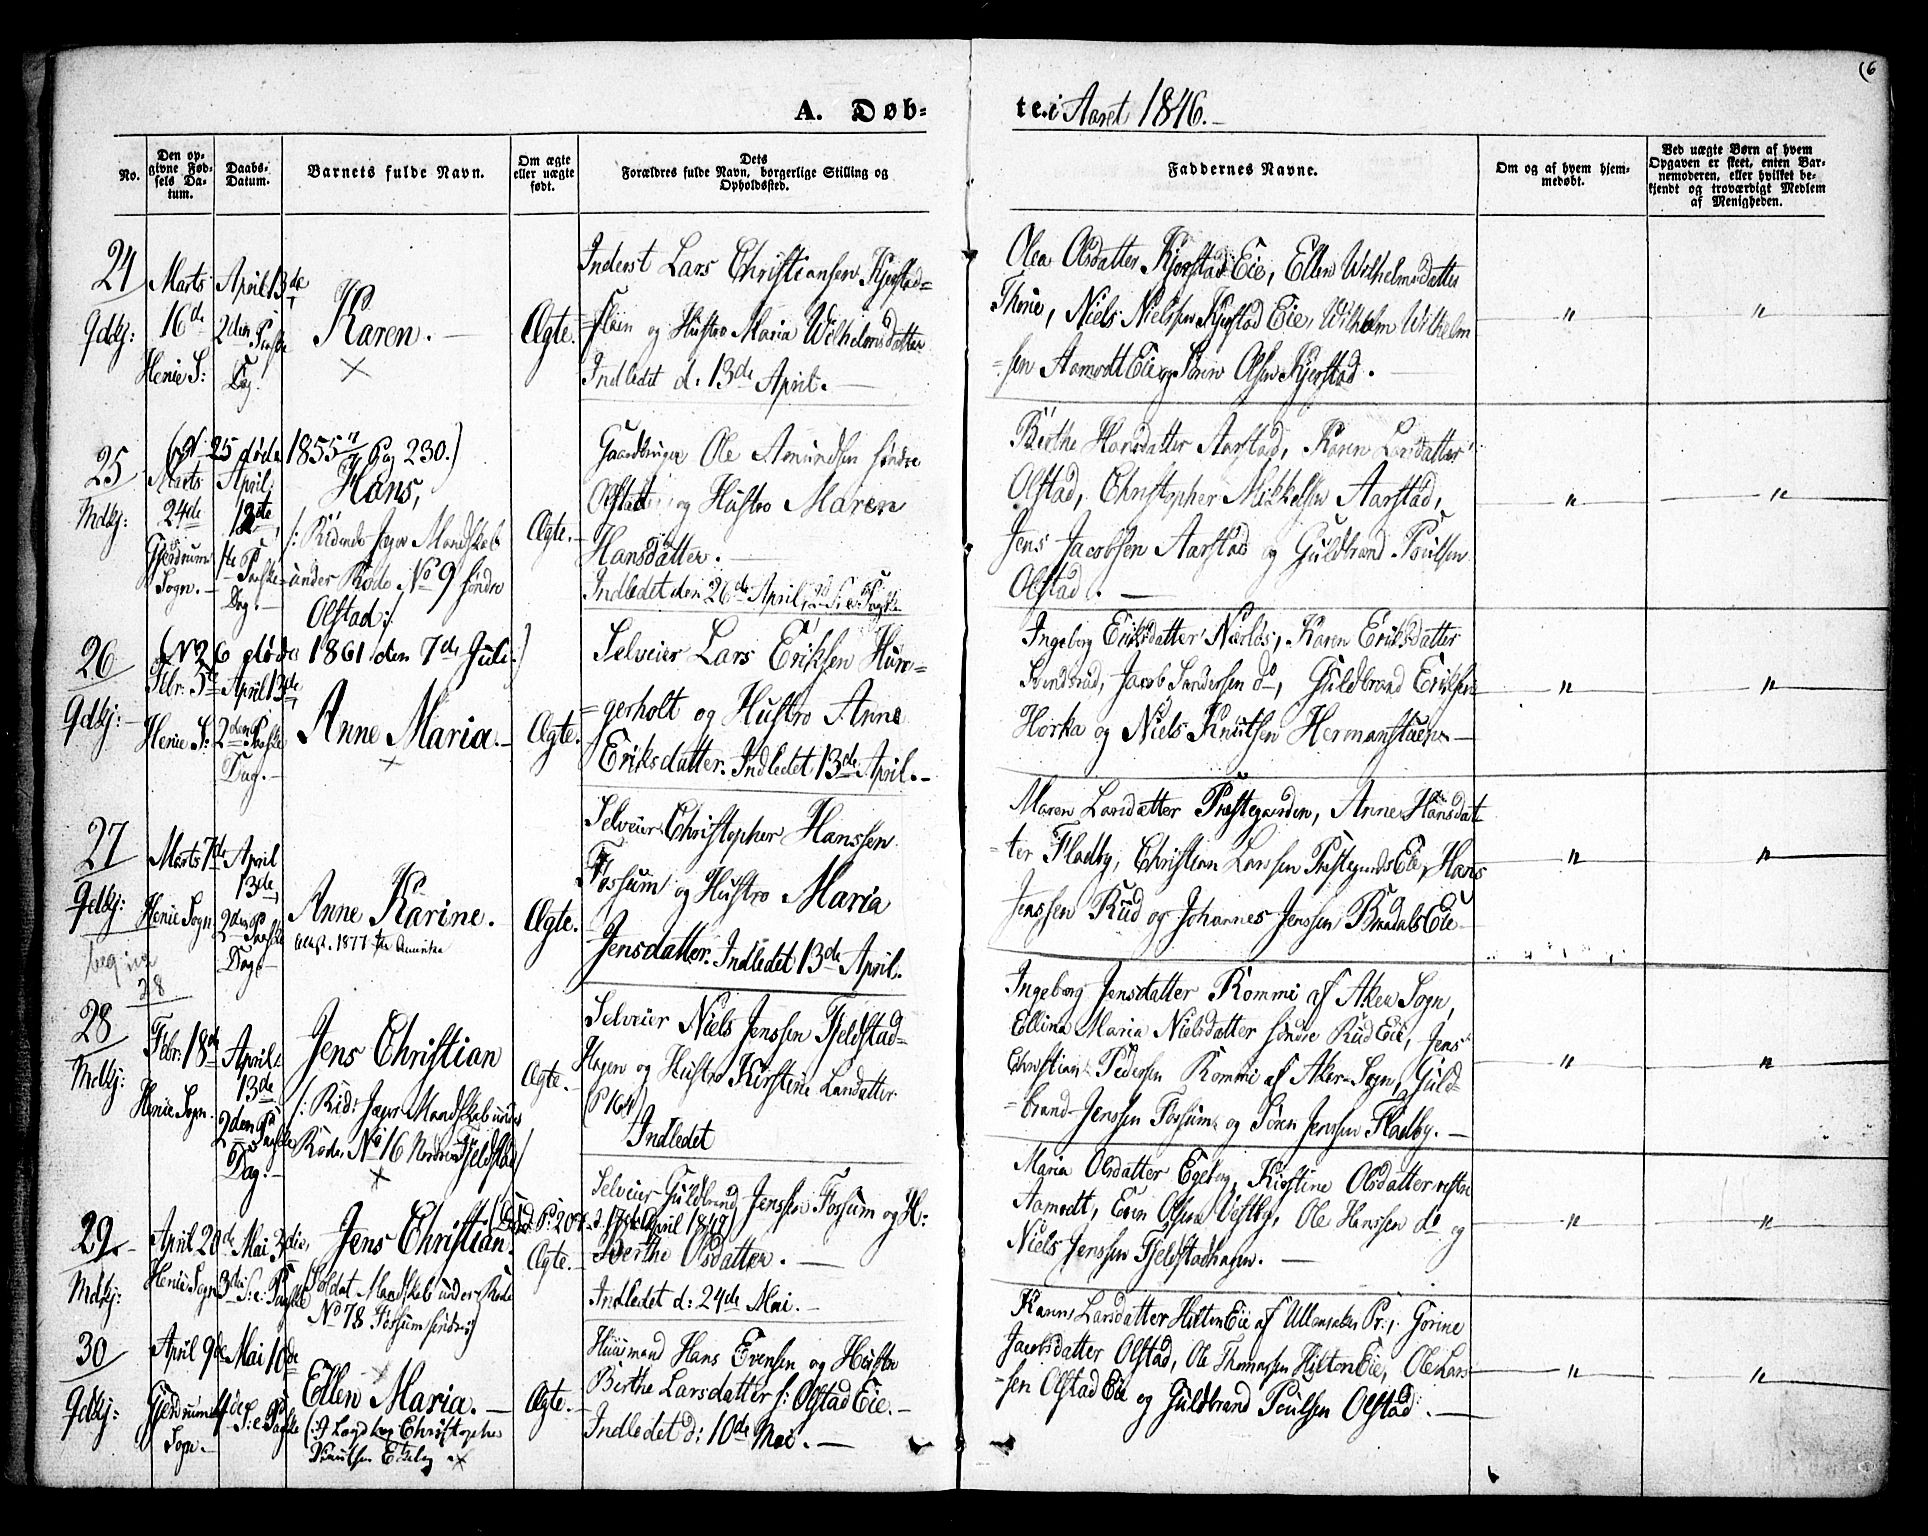 (6
A. Døb-
te. i Aaret 1846.
No.
Den op-
givne Fød-
sels Da-
tum.
Daabs-
Datum.
Barnets fulde Navn.
Om ægte
eller uægte
født.
Dets
Forældres fulde Navn, borgerlige Stilling og
Opholdssted.
Faddernes Navne.
Om og af hvem hjem-
medøbt.
Ved uægte Børn af hvem
Opgaven er skeet, enten Bar-
nemoderen, eller hvilket be-
kjendt og troværdigt Medlem
af Menigheden.
24
Qdkj:
Marts
16d
Henie S:
April 13de
2den Paaske
Dag.
Karen. —
×
Ægte.
Inderst Lars Christiansen Kjerstad=
og Hustro Maria Wilhelmsdatter
Indledet d. 13de April. —
Olea Olsdatter Kjerstad Eie, Ellen Wilhelmsdatter
Niels Nielsen Kjerstad Eie, Wilhelm Wilhelm
=sen Aamodt Eie og Olsen Kjerstad.
"
"
25
Mdkj:
25 døde 1855 Pag 230.)
Marts
24de
Gjerdrum
Sogn. —
April
12te
1te Paaske
Dag. —
Hans,
/: Ridende Jæger Mandskab
under Rode No 9 søndre
Olstad:/
Ægte. —
Gaardbruger Ole Amundsen søndre
Olstad og Hustro Maren
Hansdatter. —
Indledet den 26de April
Birthe Hansdatter Aarstad, Karen Larsdatter
Olstad, Christopher Mikkelsen Aarstad,
Jens Jacobsen Aarstad og Guldbrand Poulsen
Olstad. —
"
"
26
Qdkj:
(No 26 døde 1861 den 7de Juli:)
Febr: 3de
Henie S:
April 13de
2den Paaske
Dag. —
Anne Maria. —
×
Ægte.
Selveier Lars Eriksen Hun=
=gerholt og Hustro Anne
Eriksdatter. Indledet 13de April. —
Ingeborg Eriksdatter Nærløs, Karen Eriksdatter
Jacob Andersen do, Guldbrand Eriksen
Horka og Niels Knutsen Hermanstuen —
"
"
27
Qdkj:
Marts 7de
Henie Sogn.
April
13de
2den Paaske
Dag. —
Anne Karine.
1877 Amerika
Ægte.
Selveier Christopher Hanssen
Fossum og Hustro Maria
Jensdatter. Indledet 13de April.
Maren Larsdatter Præstegaarden, Anne Hansdat
=ter Fladby, Christian Larssen Præstegaards Eie, Hans
Jenssen Rud og Johannes Jenssen Brådals Eie —
"
"
28
28
Mdkj:
Febr: 18de
Henie Sogn.
April
13de
2den Paaske
Dag. —
Jens Christian
/: Rid: Jæger Mandskab under
Rode No 16 Nordre Fjeldstad/
×
Ægte. —
Selveier Niels Jenssen Fjeldstad=
Hagen og Hustro Kirstine Larsdatter
(P 164)
Indledet
Ingeborg Jensdatter Rommi af Aker Sogn,
Ellina Maria Nielsdatter søndre Rud Eie, Jens
Christian Pedersen Rommi af Aker Sogn, Guld=
=brand Jenssen Fossum og Søren Jenssen Fladby. —
"
"
29. —
Mdkj:
April 20de
Henie Sogn
Mai 3die
3die S: e: Paaske
Jens Christian.
Soldat Mandskab under Rode
No 78 Fossum søndre
Ægte. —
Selveier Guldbrand Jenssen Fossum og H:
(Død P: 207 d. 17de April 1847)
Berthe Olsdatter. —
Indledet d: 24de Mai. —
Maria Olsdatter Egeberg, Kirstine Olsdatter vestre
Aamodt, Even Olsen Vestby, Ole Hanssen do og
Niels Jenssen Fjeldstadhagen. —
"
"
30
Qdkj:
April 9de
Gjerdrum
Sogn. —
Mai 10de
4de S: e Paaske
Ellen Maria. —
Christopher
Knutsen
Ægte. —
Huusmand Hans Evensen og Hustro
Birthe Larsdatter /: Olstad Eie. —
Indledet d: 10de Mai. —
Karen Larsdatter Hilton Eie af Ullensaker Pr:, Gorine
Jacobsdatter Olstad, Ole Thomassen Hilton Eie, Ole Lars
=sen Olstad Eie og Guldbrand Poulsen Olstad. —
"
"